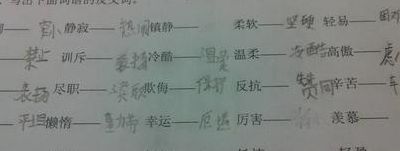 写出下面词语的反义词。
—— 宫小 静寂—— 热闹 镇静—— 柔软—— 坚硬 轻易—— 困难
—— 禁止 训斥—— 表扬 冷酷—— 温柔—— 冷酷 高傲—— 
—— 表扬 尽职—— 渎职 欺侮—— 保护 反抗—— 赞同 辛苦——
—— 平坦 懒惰—— 勤劳 幸运—— 厄运 厉害—— 羡慕——